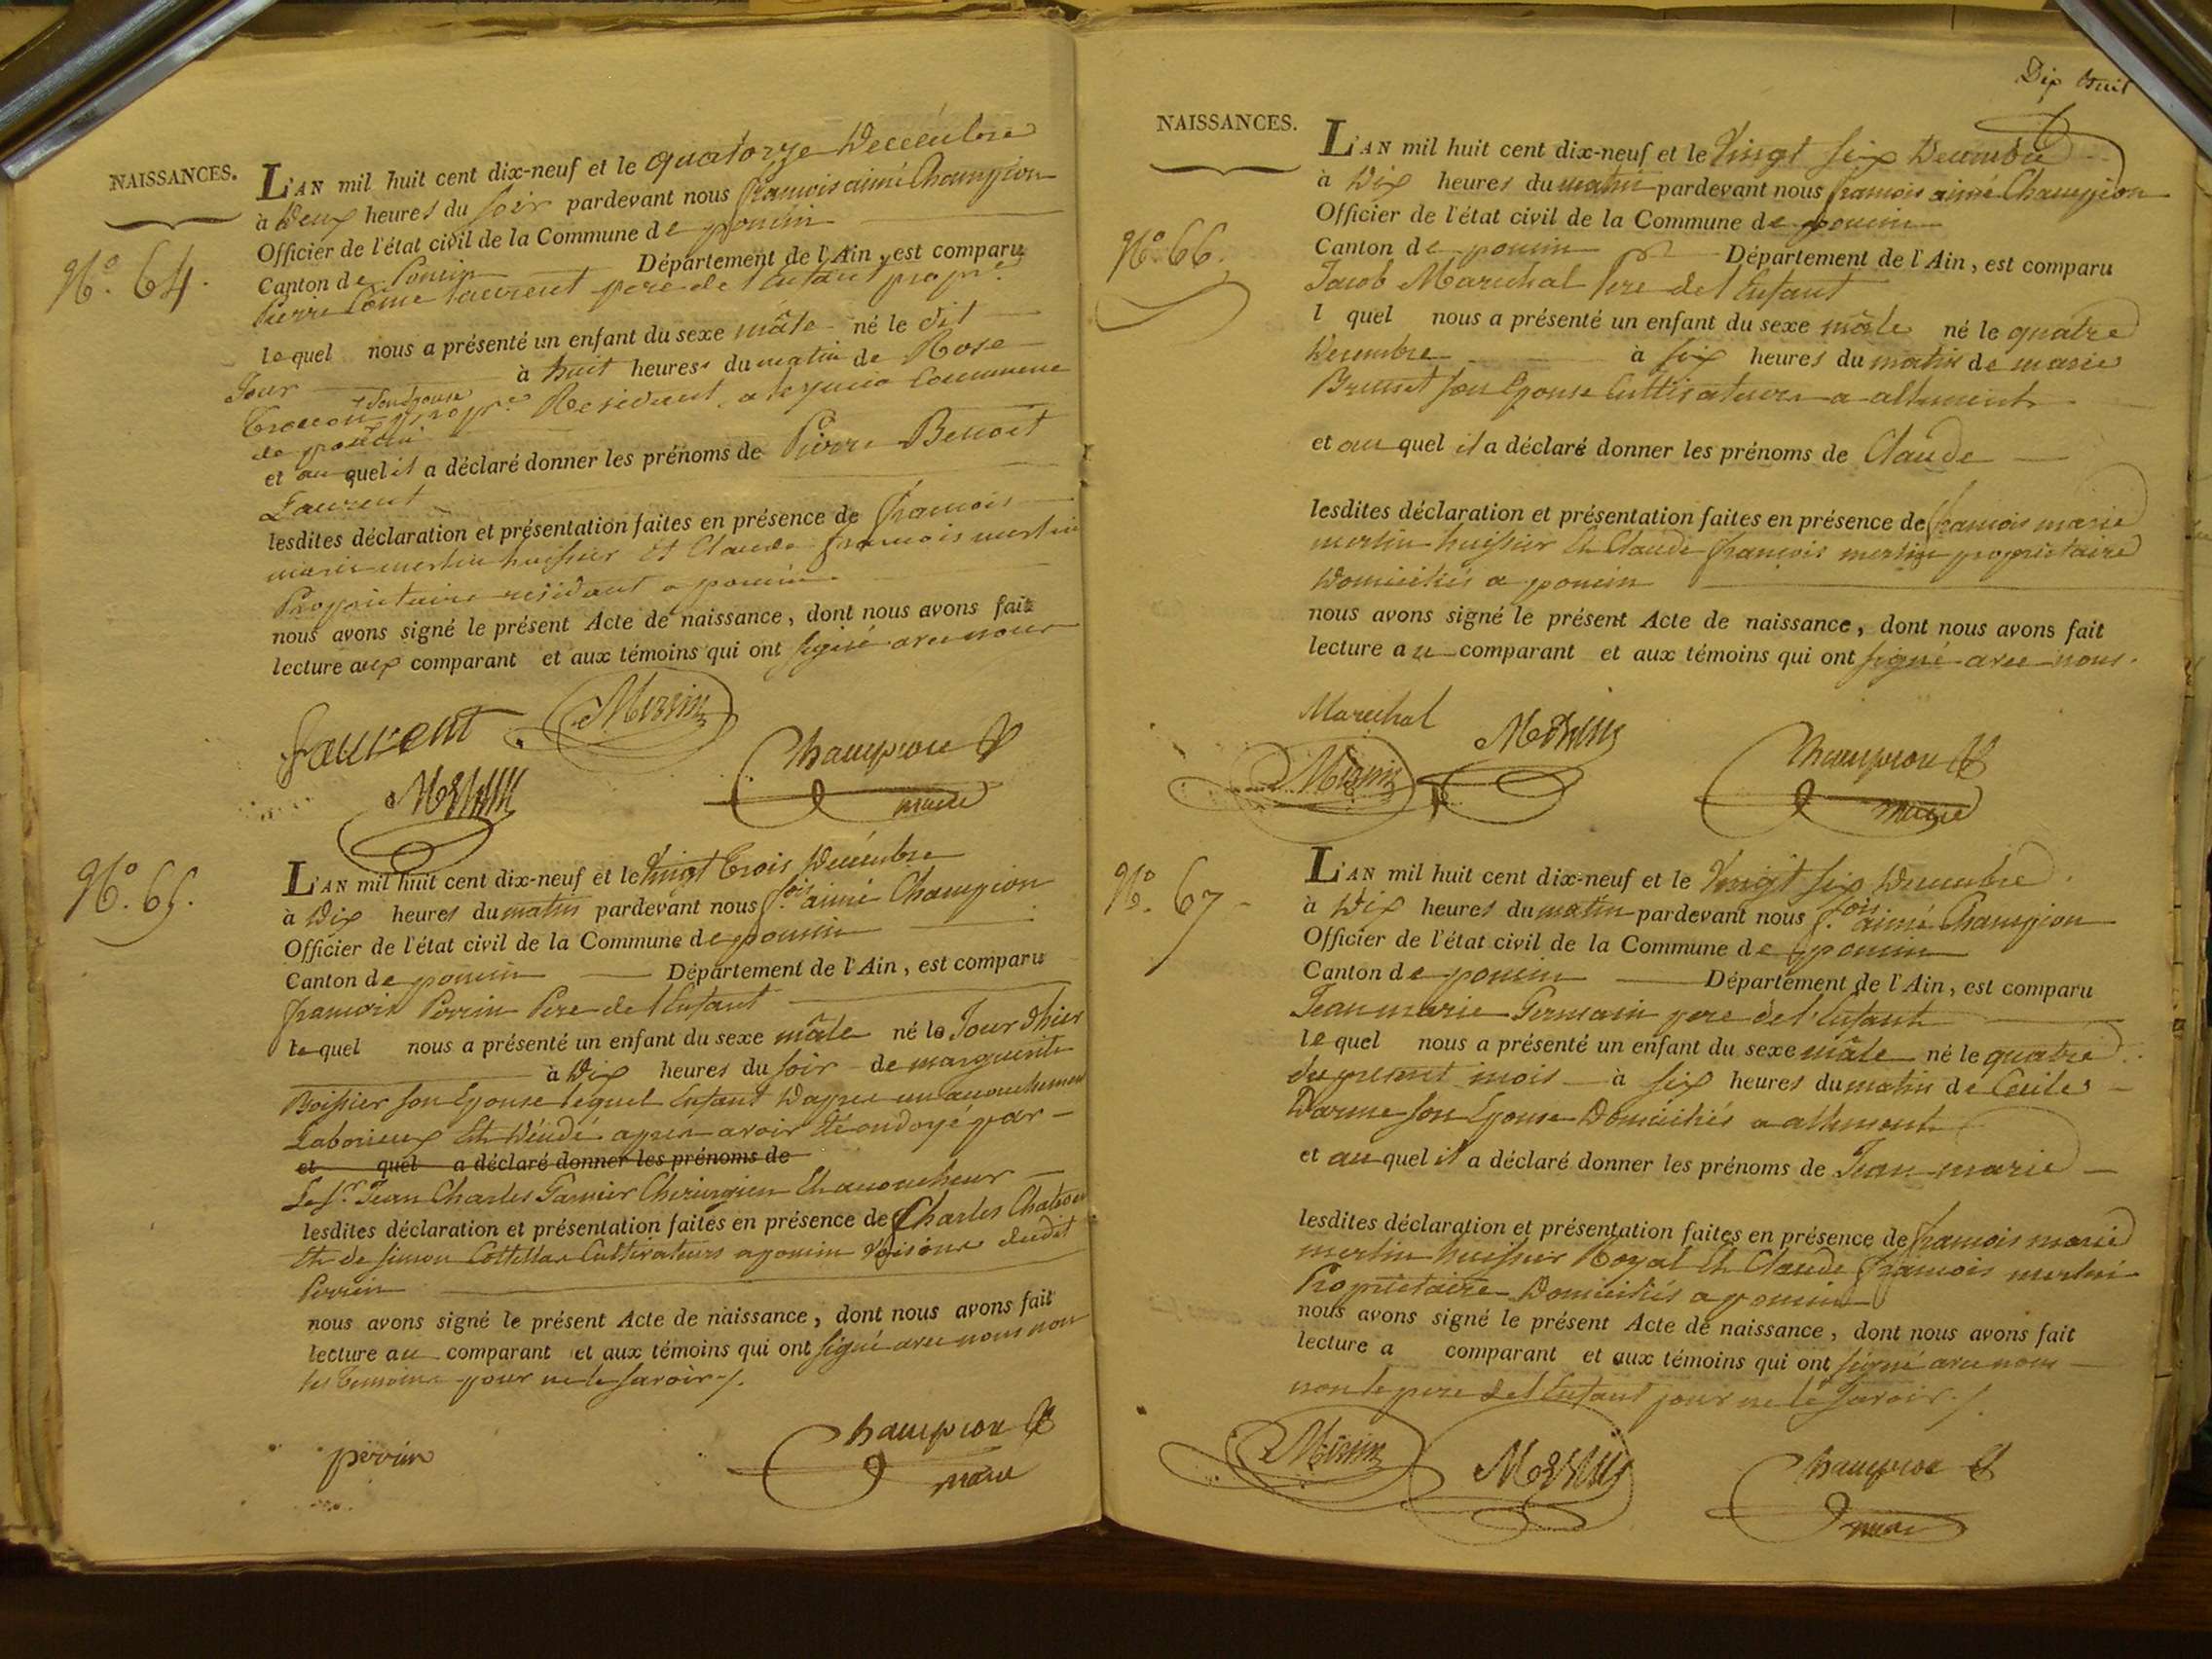 NAISSANCES.
L'AN mil huit cent dix-neuf et le quatorze Decembre
à Deux heures du soir pardevant nous françois aimé Champion
Officier de l'état civil de la Commune de poncin
N.º 64.
Canton de Poncin Département de l'Ain, est comparu
Pierre Côme Laurent pere de l'Enfant propre
lequel nous a présenté un enfant du sexe mâle né le dit
Jour à huit heures du matin de Rose
son Epouse
propre Residant a
Commune
de poncin
et au quel il a déclaré donner les prénoms de Pierre Benoit
Laurent
lesdites déclaration et présentation faites en présence de françois
marie merlin huissier Et Claude françois merlin
Proprietaire residant a poncin
nous avons signé le présent Acte de naissance, dont nous avons fait
lecture aux comparant et aux témoins qui ont signé avec nous
Laurent Merlin
Champion
Merlin
maire
N.º 65.
L'AN mil huit cent dix-neuf et le Vingt trois Decembre
à Dix heures du matin pardevant nous f.ois aimé Champion
Officier de l'état civil de la Commune de poncin
Canton de poncin Département de l'Ain, est comparu
françois Perrin Pere de l'Enfant
lequel nous a présenté un enfant du sexe mâle né le Jour d'hier
à Dix heures du soir de marguerite
Boissier son Epouse lequel Enfant Dapres un accouchement
Laborieux Est décédé apres avoir été ondoyé par
et quel a déclaré donner les prénoms de
Le S.r Jean Charles Garnier Chirurgien Et accoucheur
lesdites déclaration et présentation faites en présence de Charles
Et de simon Cultivateurs a poncin Voisins dudit
Perrin
nous avons signé le présent Acte de naissance, dont nous avons fait
lecture au comparant et aux témoins qui ont signé avec nous non
les temoins pour ne le savoir ./.
perrin
Champion
maire
Dix huit
NAISSANCES.
L'AN mil huit cent dix-neuf et le Vingt six Decembre
à Dix heures du matin pardevant nous françois aimé Champion
Officier de l'état civil de la Commune de poncin
N.º 66.
Canton de poncin Département de l'Ain, est comparu
Jacob Marechal Pere de l'Enfant
l quel nous a présenté un enfant du sexe mâle né le quatre
Decembre à six heures du matin de marie
Brunet son Epouse Cultivateurs a allement
et au quel il a déclaré donner les prénoms de Claude
lesdites déclaration et présentation faites en présence de françois marie
merlin huissier Et Claude françois merlin proprietaire
Domiciliés a poncin
nous avons signé le présent Acte de naissance, dont nous avons fait
lecture au comparant et aux témoins qui ont signé avec nous.
Marechal
Merlin
Merlin
Champion
maire
N.º 67
L'AN mil huit cent dix-neuf et le Vingt six Decembre
à Dix heures du matin pardevant nous f.ois aimé Champion
Officier de l'état civil de la Commune de poncin
Canton de poncin Département de l'Ain, est comparu
Jean marie Germain pere de l'Enfant
lequel nous a présenté un enfant du sexe mâle né le quatre
du present mois à six heures du matin de Cecile
son Epouse Domiciliés a allement
et au quel il a déclaré donner les prénoms de Jean marie
lesdites déclaration et présentation faites en présence de françois marie
merlin huissier Royal Et Claude françois merlin
Proprietaire Domiciliés a poncin
nous avons signé le présent Acte de naissance, dont nous avons fait
lecture a comparant et aux témoins qui ont signé avec nous
non le pere de l'Enfant pour ne le savoir ./.
Merlin
Merlin
Champion
maire